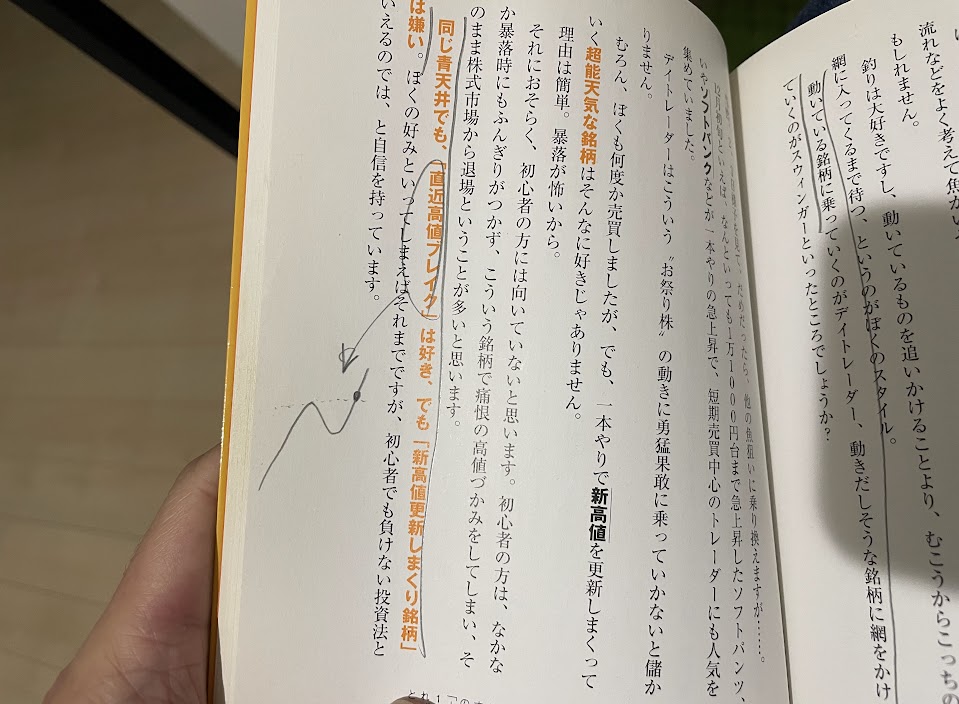 流れなどをよく考えて魚がい
もしれません。
釣りは大好きですし、動いているものを追いかけることより、むこうからこっちの
網に入ってくるまで待つ、というのがぼくのスタイル。
動いている銘柄に乗っていくのがデイトレーダー、動きだしそうな銘柄に網をかけ
ていくのがスウィンガーといったところでしょうか？
だめだったら、他の魚狙いに乗り換えますが……。
12月初旬といえば、なんといっても1万1000円台まで急上昇したソフトバンク、
いやソフトバンクなどが一本やりの急上昇で、短期売買中心のトレーダーにも人気を
集めていました。
デイトレーダーはこういう〝お祭り株〟の動きに勇猛果敢に乗っていかないと儲か
りません。
むろん、ぼくも何度か売買しましたが、でも、一本やりで新高値を更新しまくって
いく超能天気な銘柄はそんなに好きじゃありません。
理由は簡単。暴落が怖いから。
それにおそらく、初心者の方には向いていないと思います。初心者の方は、なかな
か暴落時にもふんぎりがつかず、こういう銘柄で痛恨の高値づかみをしてしまい、そ
のまま株式市場から退場ということが多いと思います。
同じ青天井でも、「直近高値ブレイク」は好き、でも「新高値更新しまくり銘柄」
は嫌い。ぼくの好みといってしまえばそれまでですが、初心者でも負けない投資法と
いえるのでは、と自信を持っています。